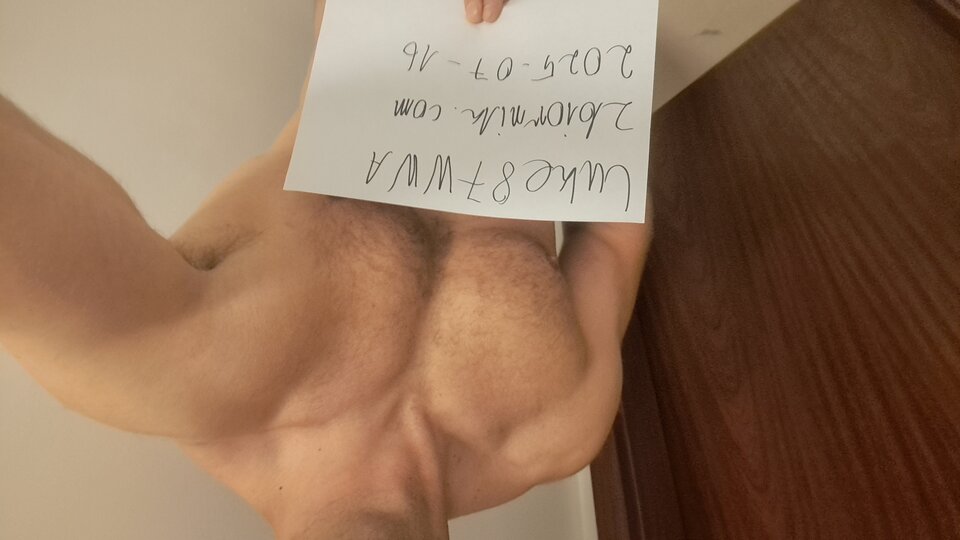 Luke87WWA
Zbiornik.com
2025-07-16